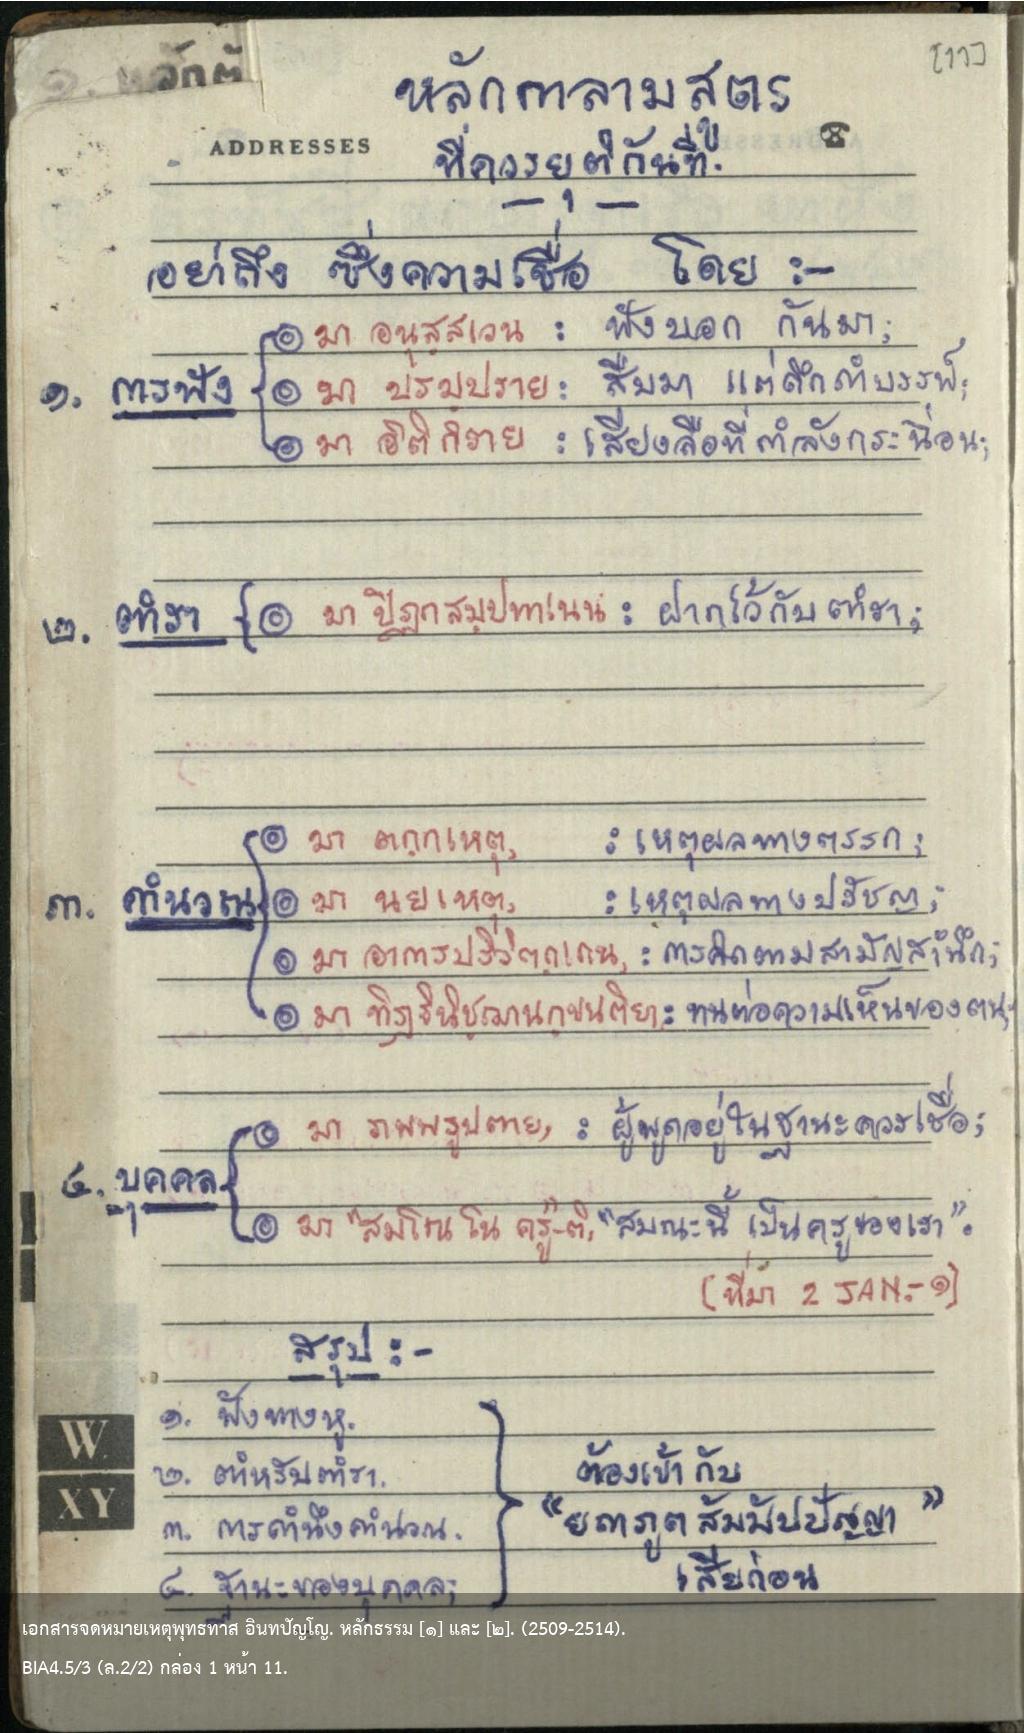 [11]
๑. หลักตั
หลักกาลามสูตร
ADDRESSES
ที่ควรยุติกันที่.
อย่าถึง ซึ่งความเชื่อ โดย :-
๑. การฟัง
◎ มา อนุสฺสเวน : ฟังบอก กันมา;
◎ มา ปรมฺปราย : สืบมา แต่ดึกดำบรรพ์;
◎ มา อิติกิราย : เสียงลือที่กำลังกระฉ่อน;
๒. ตำรา { ◎ มา ปิฏกสมฺปทาเนน : ฝากไว้กับตำรา;
๓. คำนวณ
◎ มา ตกฺกเหตุ, : เหตุผลทางตรรก;
◎ มา นยเหตุ, : เหตุผลทางปรัชญา;
◎ มา อาการปริวิตกฺเกน, : การคิดตามสามัญสำนึก;
◎ มา ทิฏฺฐินิชฺฌานกฺขนฺติยา : ทนต่อความเห็นของตน;
๔. บุคคล
◎ มา ภพฺพรูปตาย, : ผู้พูดอยู่ในฐานะควรเชื่อ;
◎ มา "สมโณ โน ครู"-ติ, "สมณะนี้ เป็นครูของเรา".
(ที่มา 2 JAN.-๑)
สรุป :-
๑. ฟังทางหู.
๒. ตำหรับตำรา.
๓. การคำนึงคำนวณ.
๔. ฐานะของบุคคล;
ต้องเข้ากับ
"ยถาภูตสัมมัปปัญญา"
เสียก่อน
W
XY
เอกสารจดหมายเหตุพุทธทาส อินทปัญโญ. หลักธรรม [๑] และ [๒]. (2509-2514).
BIA4.5/3 (ล.2/2) กล่อง 1 หน้า 11.